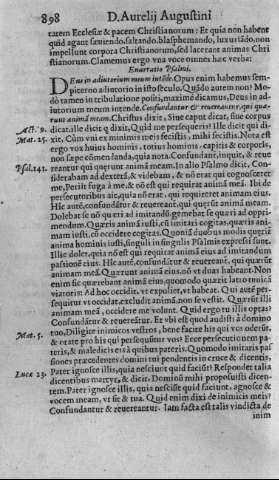 898 D. Aurelij Augustini
tatem Ecclesiæ & pacem Christianorum: Et quia non habent
quid agant sæuiendo, saltando, blasphemando, luxuriãdo, non
impellunt corpora Christianorum, sed lacerant animas Chri
stianorum. Clamemus ergo vna voce omnes hæc verba:
Enarratio Psalmi.
Deus in adiutorium meum intẽde. Opus enim habemus sem-
piterno adiutorio in isto sæculo. Quãdo autem non? Mo
dò tamen in tribulatione positi, maximè dicamus, Deus in ad-
iutorium meum intende. Confundantur & reuereantur, qui quæ-
runt animam meam. Christus dixit, Siue caput dicat, siue corpus
Act. 9. dicat: ille dicit qui dixit, Quid me persequeris? Ille dicit qui di-
Mat. 25. xit, Cùm vni ex minimis meis fecistis, mihi fecistis. Nota est
ergo vox huius hominis, totius hominis, capitis & corporis,
non sæpe cõmendanda, quia nota. Confundantur, inquit, & reue
Psal. 141. reantur qui quærunt animam meam. In alio Psalmo dicit, Con-
siderabam ad dexterã, & videbam, & nõ erat qui cognosceret
me, Periit fuga à me, & nõ est qui requirat animã meã. Ibi de
persecutoribus ait, quia nõ erat, qui requireret animam eius,
Hic autẽ, confundãtur & reuereantur, qui quærũt animã meam.
Dolebat se nõ quæri ad imitandũ: gemebat se quæri ad oppri-
mendum. Quæris animã iusti, cũ imitari cogitas, quæris ani-
mam iusti, cũ occidere cogitas. Quoniã duobus modis quæritur
anima hominis iusti, singuli in singulis Psalmis expressi sunt.
Illic dolet, quia nõ est qui requirat animã eius ad imitandum
passionẽ eius. Hic autẽ, confundãtur & reuereantur, qui quærũt
animam meã. Quærunt animã eius, nõ vt duas habeant. Non
enim sic quærebant animã eius, quomodo quærit latro tunicã
viatoris: Ad hoc occidit, vt expoliet, vt habeat. Qui autẽ per-
sequitur vt occidat, excludit animã, non se vestit. Quærũt illi
animam meã, occidere me volunt. Quid ergo tu illis optas?
Confundãtur & reuereãtur. Et vbi est quod audisti à domino
Mat. 5. tuo, Diligite inimicos vestros, benefacite his qui vos oderũt,
& orate pro his qui persequuntur vos? Ecce persecutionem pa-
teris, & maledicis eis à quibus pateris. Quomodo imitaris pas
siones præcedentes domini tui pendentis in cruce & dicentis,
Luca 23. Pater ignosce illis, quia nesciunt quid faciũt? Respondet talia
dicentibus martyr, & dicit, Dominũ mihi proposuisti dicen-
tem, Pater ignosce illis, quia nesciũt quid faciunt. agnosce &
vocem meam, vt sit & tua. Quid enim dixi de inimicis meis?
Confundantur & reuereantur. Iam facta est talis vindicta de
inim